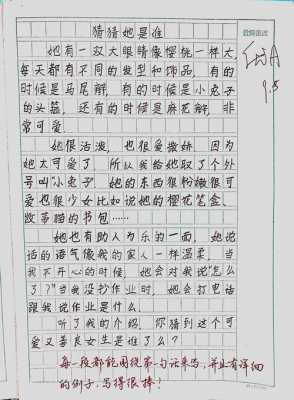 猜猜她是谁
她有一双大眼睛像樱桃一样大，
每天都有不同的发型和饰品，有的
时候是马尾辫，有的时候是小兔子
的头箍，还有的时候是麻花辫，非
常可爱。
她很活泼，也很爱撒娇，因为
她太可爱了，所以我给她取了个外
号叫“小兔子”，她的东西很粉嫩很可
爱也很少女比如说她的樱花笔盒、
故事猫的书包……
她也有助人为乐的一面，她说
话的语气像我的家人一样温柔，当
我不开心的时候，她会对我说“怎么
了？”当我没抄作业时，她会打电话
跟我说作业是什么。
听了我的介绍，你猜到这个可
爱又善良女生是谁了么？
每一段都能围绕第一句话来写，并且有详细
的例子，写得很棒！
A
9.5